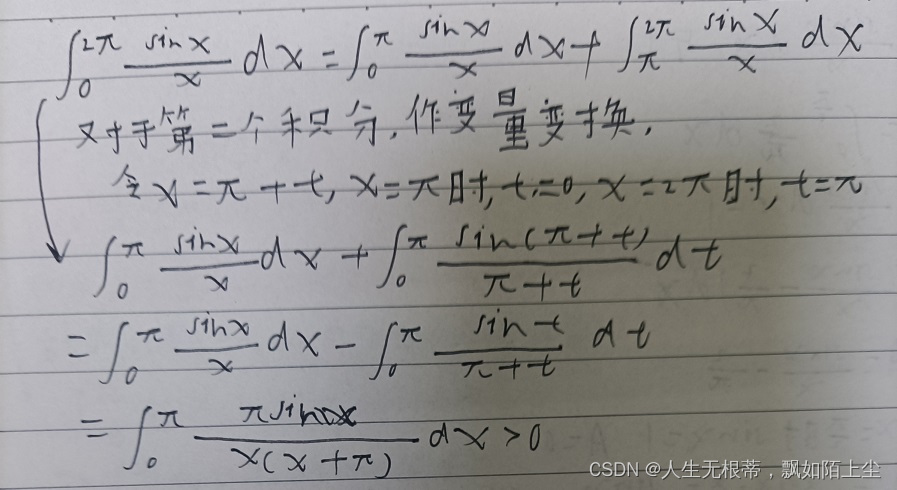 ∫₀^{2π} sinx/x dx = ∫₀^{π} sinx/x dx + ∫_{π}^{2π} sinx/x dx
对于第二个积分,作变量变换,
令x=π+t, x=π时,t=0, x=2π时,t=π
∫₀^{π} sinx/x dx + ∫₀^{π} sin(π+t)/(π+t) dt
= ∫₀^{π} sinx/x dx - ∫₀^{π} sint/(π+t) dt
= ∫₀^{π} πsinx/(x(x+π)) dx > 0
CSDN @人生无根蒂,飘如陌上尘